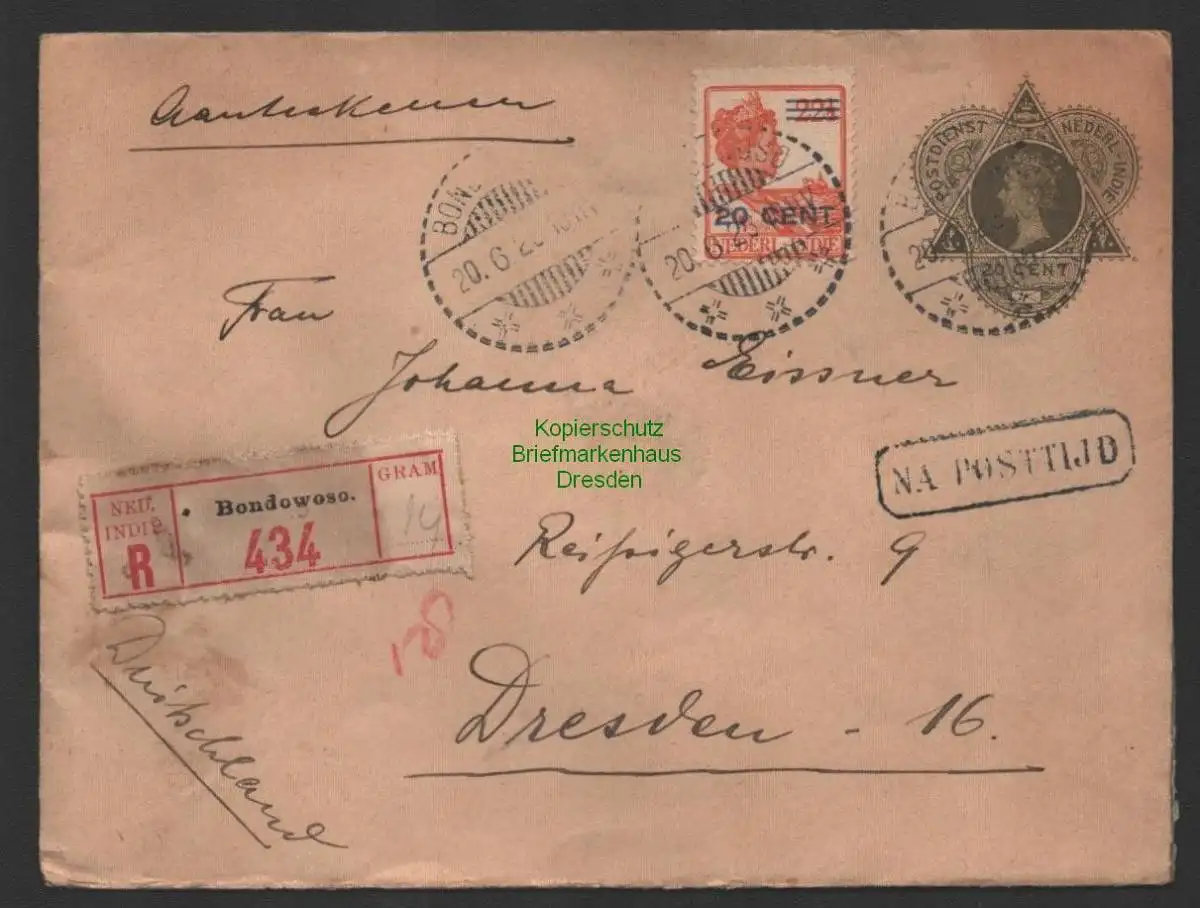 Aanteekenen
22½
20 CENT
NEDERL-INDIE
POSTDIENST NEDERL-INDIE
20 CENT
BOND
20.6.2
20.6.23
20.
Frau
Johanna Eissner
Kopierschutz
Briefmarkenhaus
Dresden
NA POSTTIJD
NED.
INDIE
R
Bondowoso.
434
GRAM
14
Reißigerstr. 9
Dresden - 16.